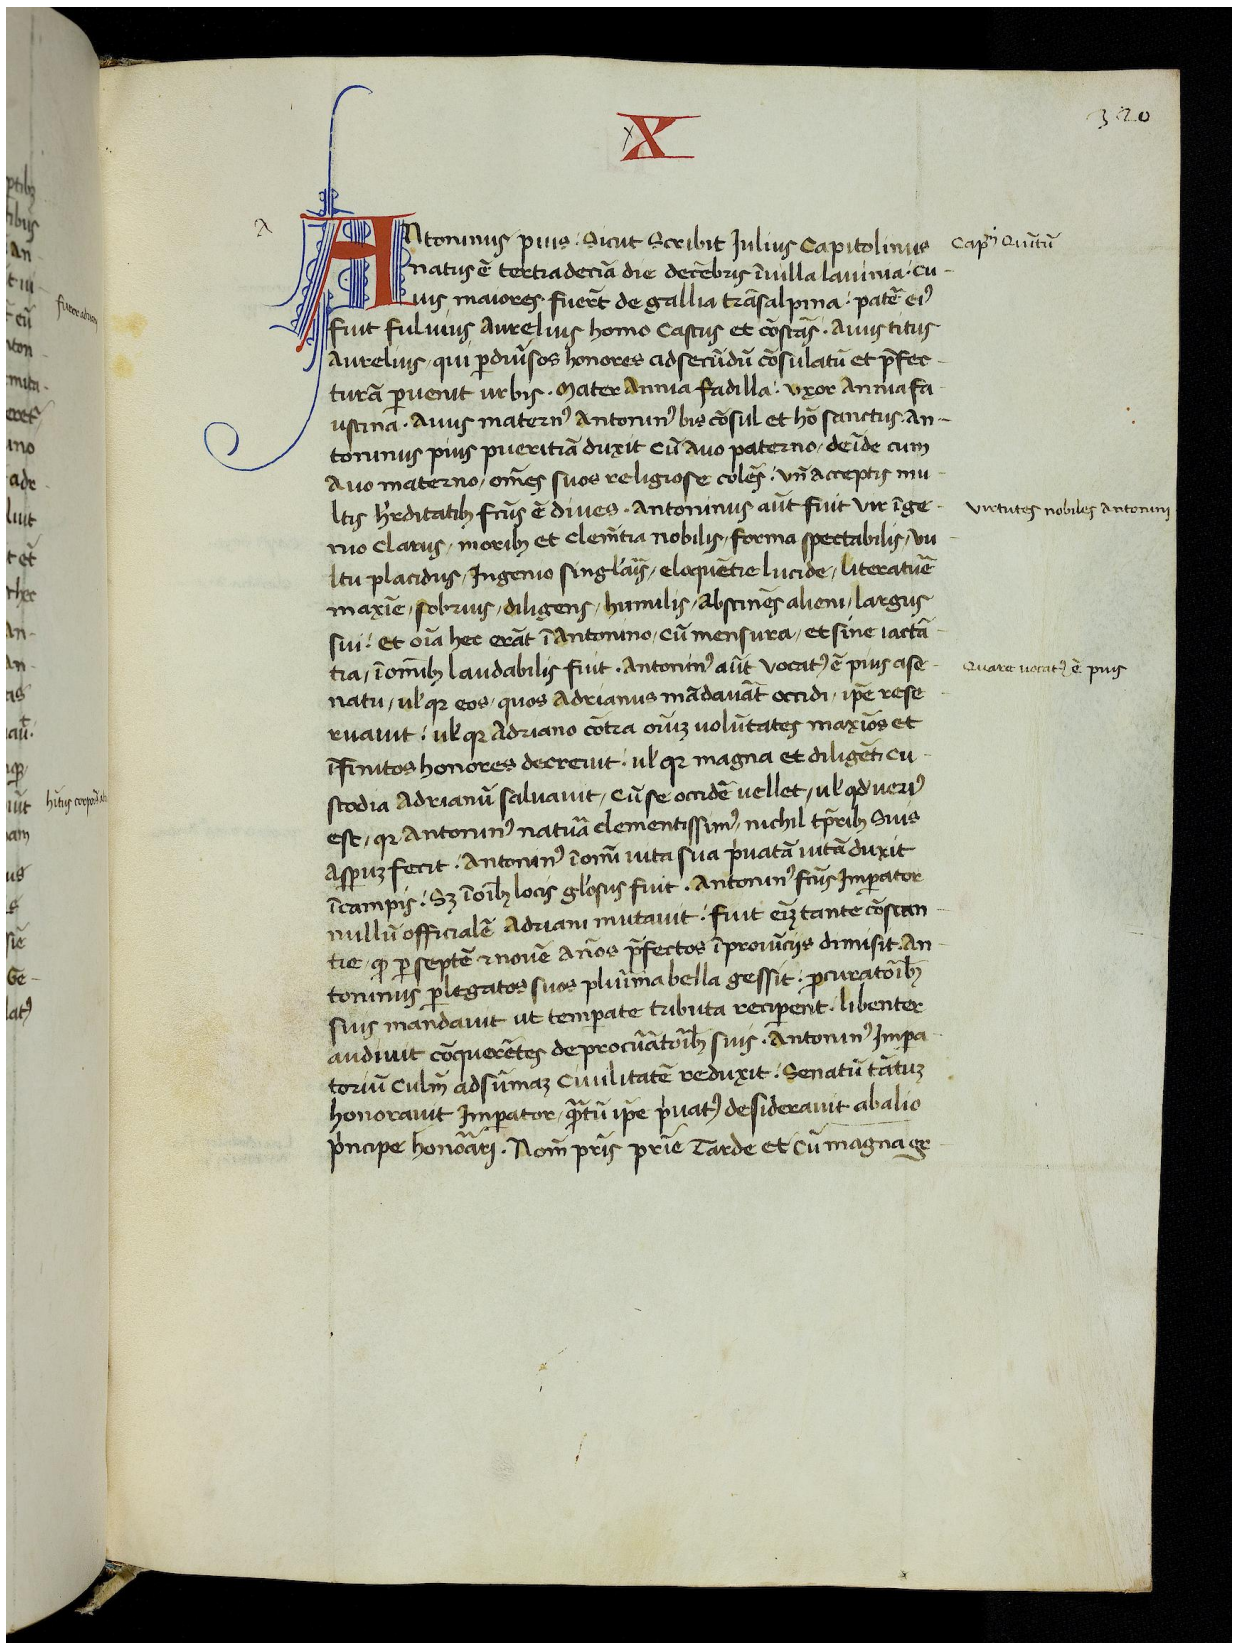 X
320
Antoninus pius. Sicut Scribit Julius Capitolinus
Capm̄ Quītū
natus ē tertiadecīa die decēbris ī uilla lauinia. Cu-
ius maiores fuer̄t de gallia trāsalpina. patē eiꝰ
fuit fuluius Aurelius homo Castus et cōstās. Auus titus
Aurelius, qui ꝑ diūsos honores ad secūdū cōsulatū et p̄fec-
turā ꝑuenit urbis. Mater Annia fadilla. uxor Annia fa
ustina. Auus maternꝰ Antoninꝰ bis cōsul et hō sanctus. An-
toninus pius pueritiā duxit cū Auo paterno, deīde cum
Auo materno, om̄es suos religiose colēs. Vn̄ acceptis mu
ltis h̓rditatibꝫ fc̄us ē diues. Antoninus aūt fuit vir īge-
Virtutes nobiles Antonini
nio Clarus, moribꝫ et clem̄tia nobilis, forma spectabilis, vu
ltu placidus, Ingenio singl̓aris, eloquētie lucide, literatuē
maxīe, sobrius, diligens, humilis, Abstinēs alieni, largus
sui. et oīa hec erāt ī Antonino, cū mensura, et sine iactā
tia, ī om̄ibꝫ laudabilis fuit. Antoninꝰ aūt vocatꝰ ē pius a se-
Quare uocatꝰ ē pius
natu, ul̓ qꝛ eos, quos Adrianus mādauāt occidi, ip̄e rese
ruauit. ul̓ qꝛ Adriano cōtra oīuꝫ uolūtates maxīos et
īfinitos honores decreuit. ul̓ qꝛ magna et diligēti cu-
stodia Adrianū saluauit, Cū se occidē uellet, ul̓ qd̓ ueriꝰ
est, qꝛ Antoninꝰ natuā clementissimꝰ, nichil tp̄ribꝫ Suis
Asꝑuꝫ fecit. Antoninꝰ ī omī uita sua p̓uatā uitā duxit
ī campis. Sꝫ ī oībꝫ locis gl̓osus fuit. Antoninꝰ fc̄us Imꝑator
nullū officialē Adriani mutauit. fuit eīꝫ tante cōstan-
tie, qꝫ ꝑ septē ⁊ nouē An̄os p̄fectos ī prouīcijs dimisit. An-
toninus ꝑ legatos suos pluīma bella gessit. ꝓcuratoībꝫ
suis mandauit ut temꝑate tributa reciꝑent. libenter
audiuit cōquerētes de procuātoībꝫ suis. Antoninꝰ Imꝑa-
toriū Culm̄ ad sūmaꝫ Ciuilitatē reduxit. Senatū tātuꝫ
honorauit Imꝑator, q̄tū ip̄e p̓uatꝰ desiderauit ab alio
p̓ncipe honoāri. Nom̄ pr̄is pr̄ie Tarde et cū magna gr-